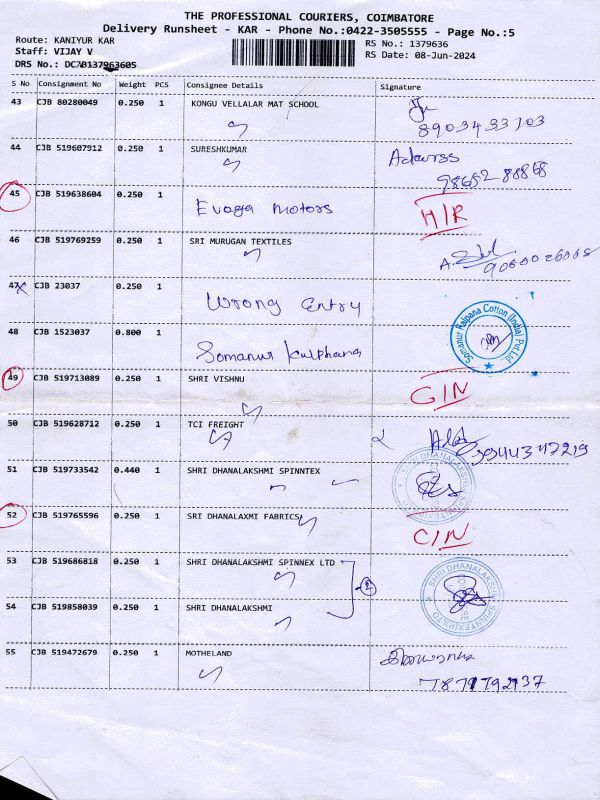 THE PROFESSIONAL COURIERS, COIMBATORE
Delivery Runsheet - KAR - Phone No.:0422-3505555 - Page No.:5
Route: KANIYUR KAR
Staff: VIJAY V
RS No.: 1379636
DRS No.: DC7B137963605
RS Date: 08-Jun-2024
S No Consignment No Weight PCS Consignee Details Signature
43 CJB 80280049 0.250 1 KONGU VELLALAR MAT SCHOOL
44 CJB 519607912 0.250 1 SURESHKUMAR
98652 88868
45 CJB 519638604 0.250 1 Evoga Motors H/R
46 CJB 519769259 0.250 1 SRI MURUGAN TEXTILES
47 CJB 23037 0.250 1 Wrong Entry
48 CJB 1523037 0.800 1 Somanur Kulphana
Somanur Kalpana Cotton (India) Pvt Ltd
49 CJB 519713089 0.250 1 SHRI VISHNU
50 CJB 519628712 0.250 1 TCI FREIGHT
51 CJB 519733542 0.440 1 SHRI DHANALAKSHMI SPINNTEX
52 CJB 519765596 0.250 1 SRI DHANALAXMI FABRICS C/N
53 CJB 519686818 0.250 1 SHRI DHANALAKSHMI SPINNEX LTD
54 CJB 519858039 0.250 1 SHRI DHANALAKSHMI
55 CJB 519472679 0.250 1 MOTHELAND